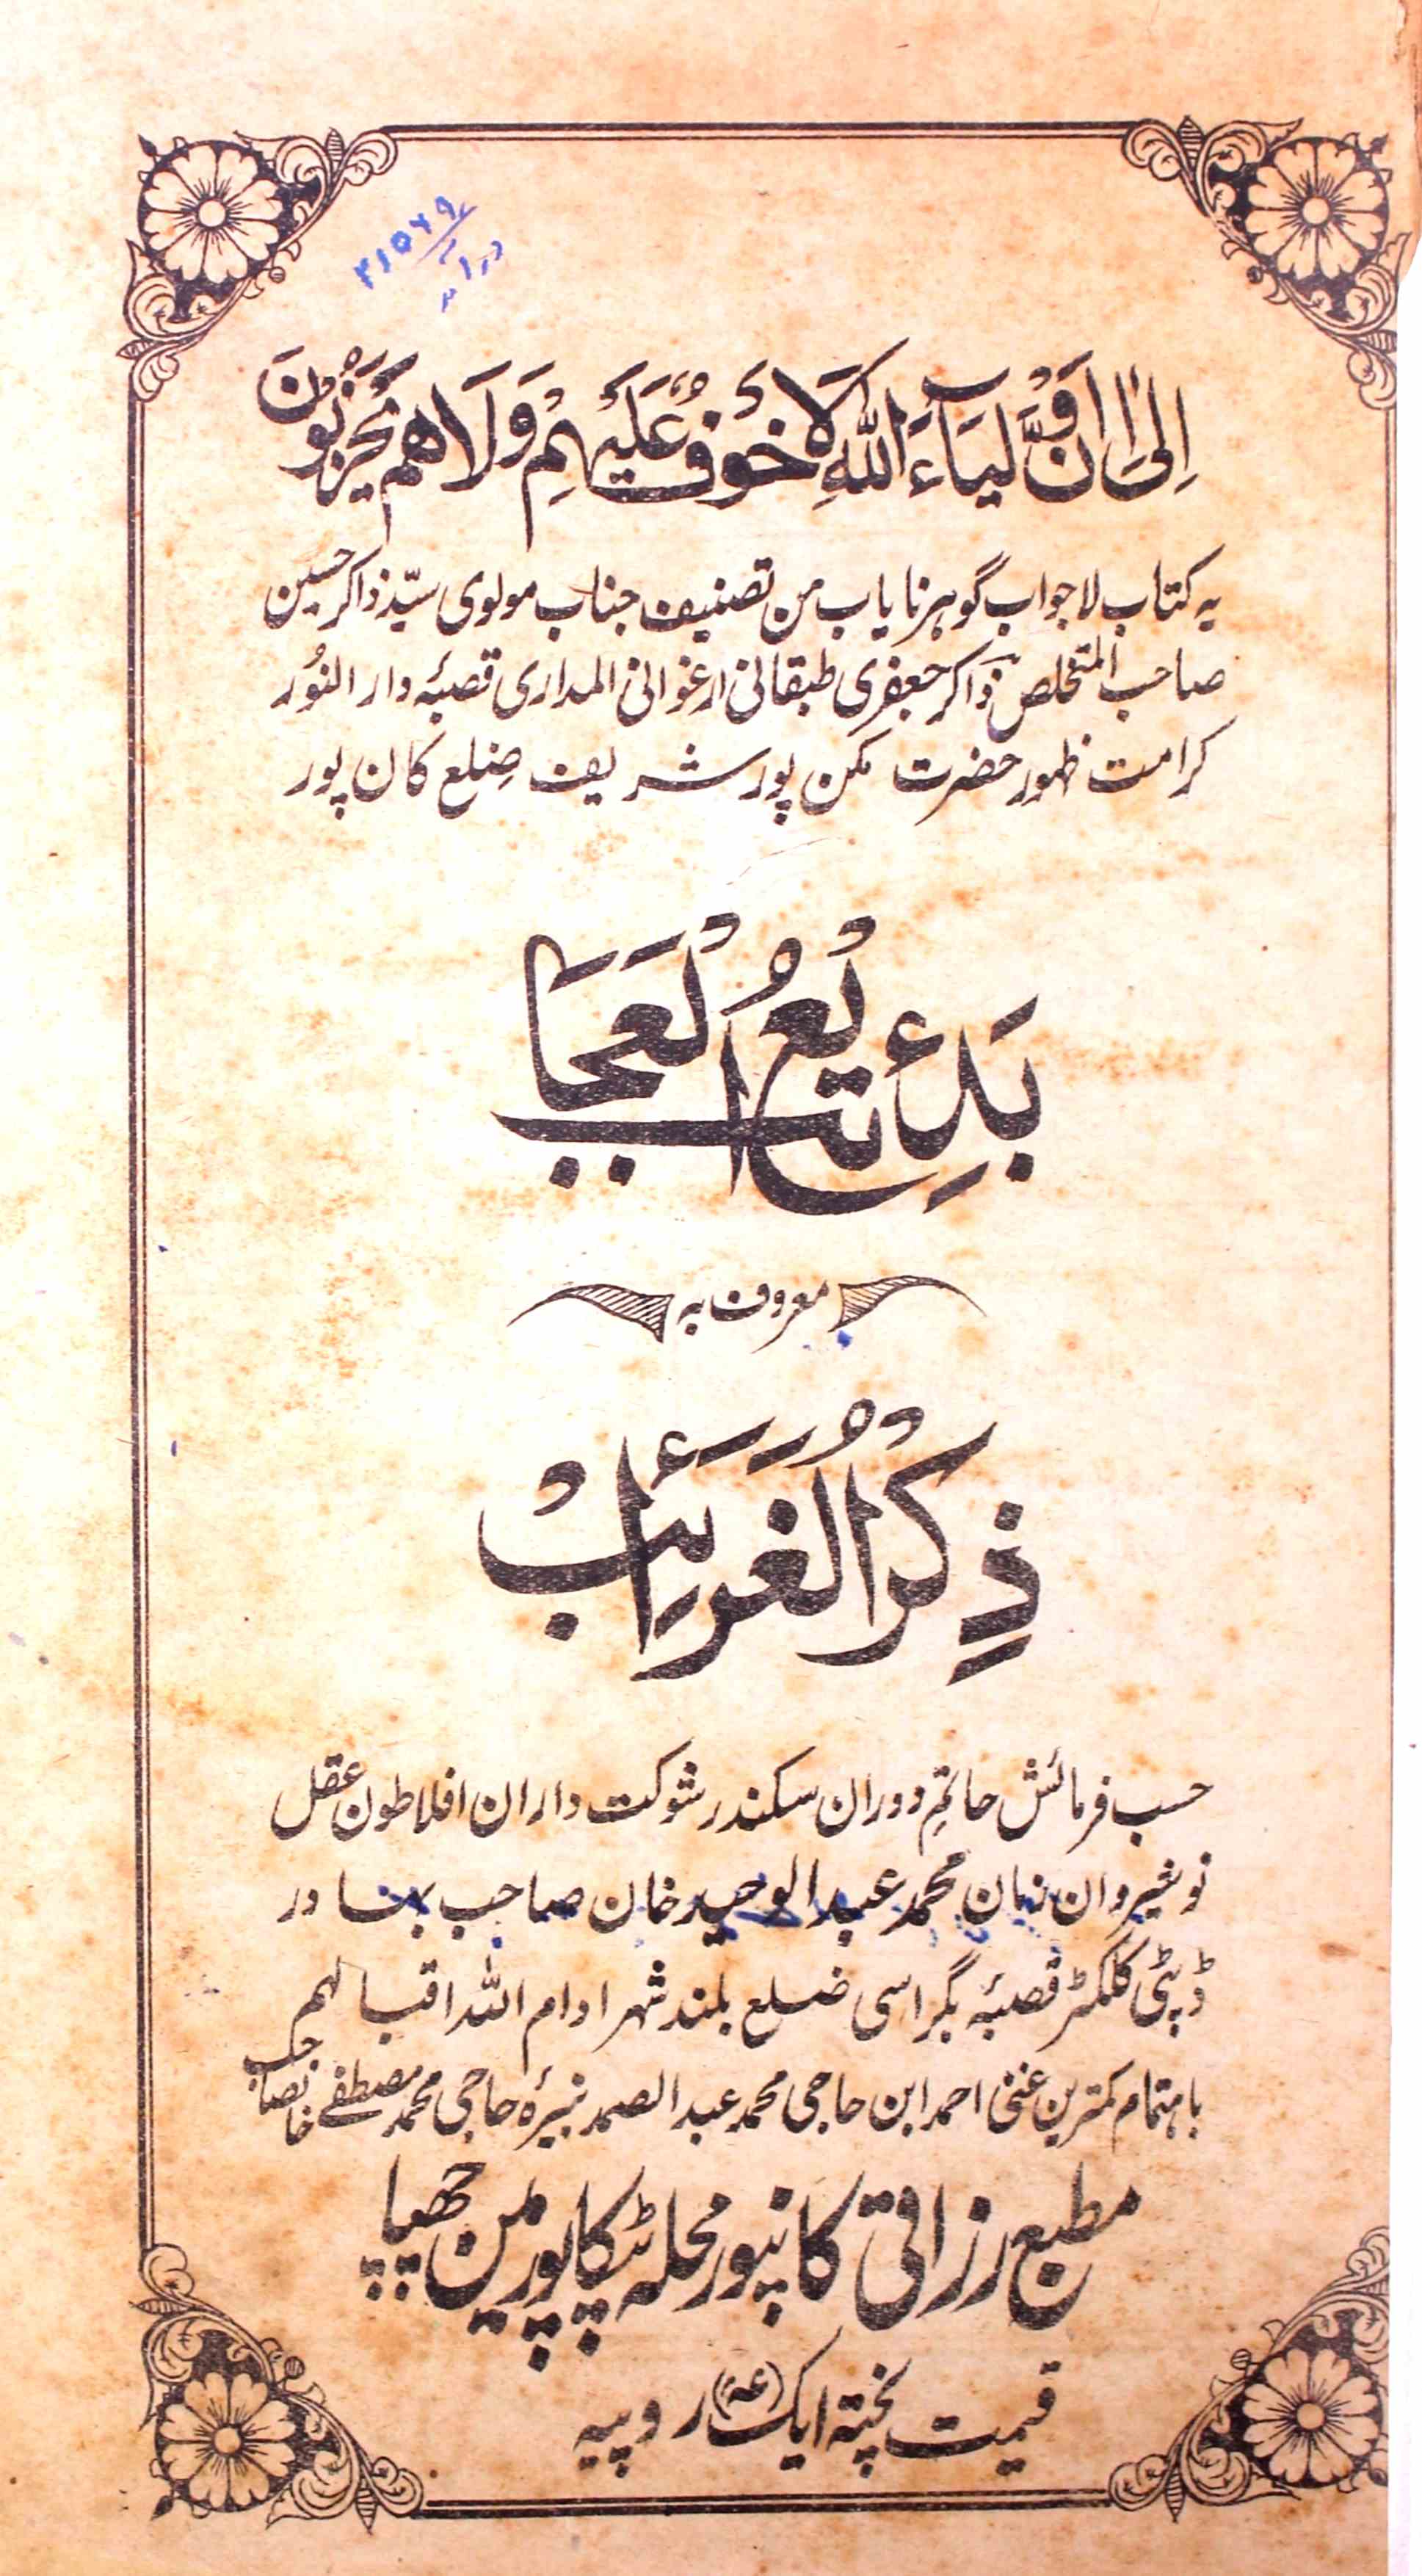 ۲۱۵۶۹
اِلیٰ اانَّ اَوْلِیَآءَ اللّٰهِ لَا خَوْفُ عَلَیْهِمْ وَلَا هم یَحْزَنُوْنَ
یہ کتاب لاجواب گوہر نایاب من تصنیف جناب مولوی سیّد ذاکر حسین
صاحب المتخلص بہ ذاکر جعفری طبقاتی ارغوانی المداری قصبۂ دار النُور
کرامت ظہور حضرت مکن پور شریف ضِلع کان پور
بَدِیْعُ الْعَجَائب
معروف بہ
ذِکْرُ الْغَرَائِبْ
حسب فرمائش حاتمِ دوران سکندر شوکت داران افلاطون عقل
نوشیروان زمان محمد عبد الوحید خان صاحب بہادر
ڈپٹی کلکٹر قصبۂ بگراسی ضلع بلند شہر ادام اللہ اقبالہم
باہتمام کمترین غنی احمد ابن حاجی محمد عبد الصمد نبیرۂ حاجی محمد مصطفےٰ خانصاحب
مطبع رزاقی کانپور محلہ پٹکاپور مین چھپا
قیمت پختہ ایک (عہ) روپیہ